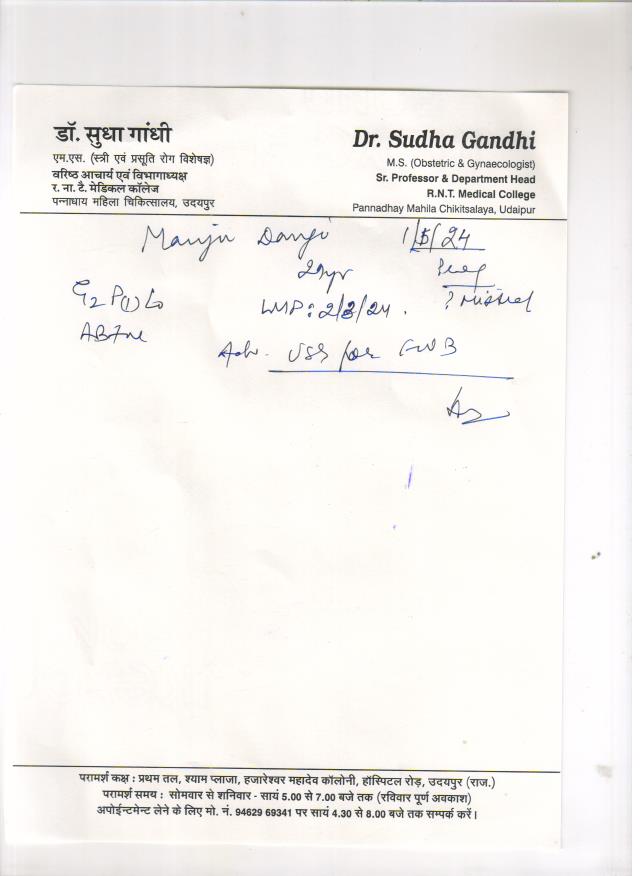 डॉ. सुधा गांधी
एम.एस. (स्त्री एवं प्रसूति रोग विशेषज्ञ)
वरिष्ठ आचार्य एवं विभागाध्यक्ष
र. ना. टै. मेडिकल कॉलेज
पन्नाधाय महिला चिकित्सालय, उदयपुर
Dr. Sudha Gandhi
M.S. (Obstetric & Gynaecologist)
Sr. Professor & Department Head
R.N.T. Medical College
Pannadhay Mahila Chikitsalaya, Udaipur
Manju Dangi 1/5/24
G2 P(1) L0
LMP: 2/3/24.
Adv. USS for FWB
परामर्श कक्ष : प्रथम तल, श्याम प्लाजा, हजारेश्वर महादेव कॉलोनी, हॉस्पिटल रोड़, उदयपुर (राज.)
परामर्श समय : सोमवार से शनिवार - सायं 5.00 से 7.00 बजे तक (रविवार पूर्ण अवकाश)
अपोईन्टमेन्ट लेने के लिए मो. नं. 94629 69341 पर सायं 4.30 से 8.00 बजे तक सम्पर्क करें।